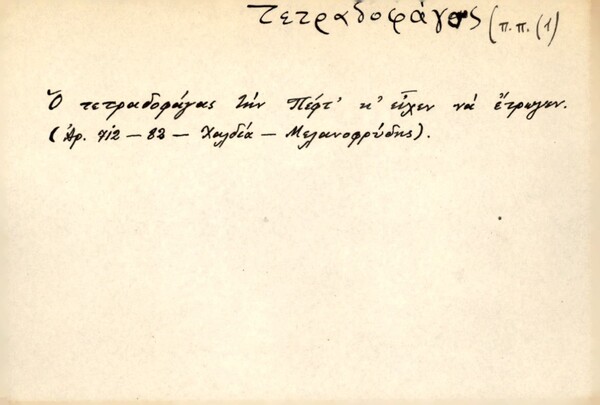 Τετραδοφάγος (π.π. (1)
Ὁ τετραδοφάγας τὴν Πέφτ' κ' εἶχεν νά ἔτρωγεν.
(Ἀρ. 712 – 82 – Χαλδία – Μελανοφρύδης).